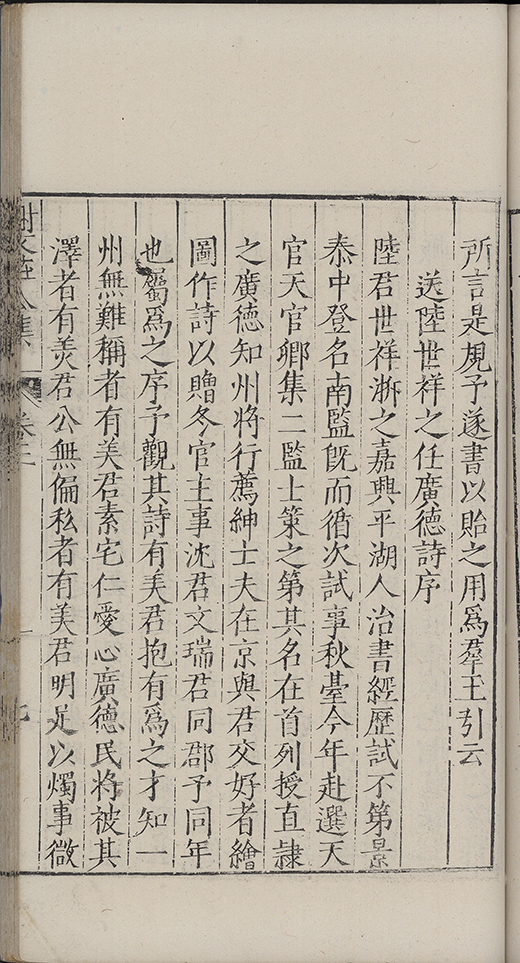 所言是規予遂書以貽之用爲羣玉引云
送陸世祥之任廣德詩序
陸君世祥浙之嘉興平湖人治書經歷試不第景
泰中登名南監旣而循次試事秋臺今年赴選天
官天官卿集二監士策之第其名在首列授直隷
之廣德知州將行薦紳士夫在京與君交好者繪
圖作詩以贈冬官主事沈君文瑞君同郡予同年
也屬爲之序予觀其詩有美君抱有爲之才知一
州無難稱者有美君素宅仁愛心廣德民將被其
澤者有美君公無偏私者有美君明足以燭事微
集 卷二 九